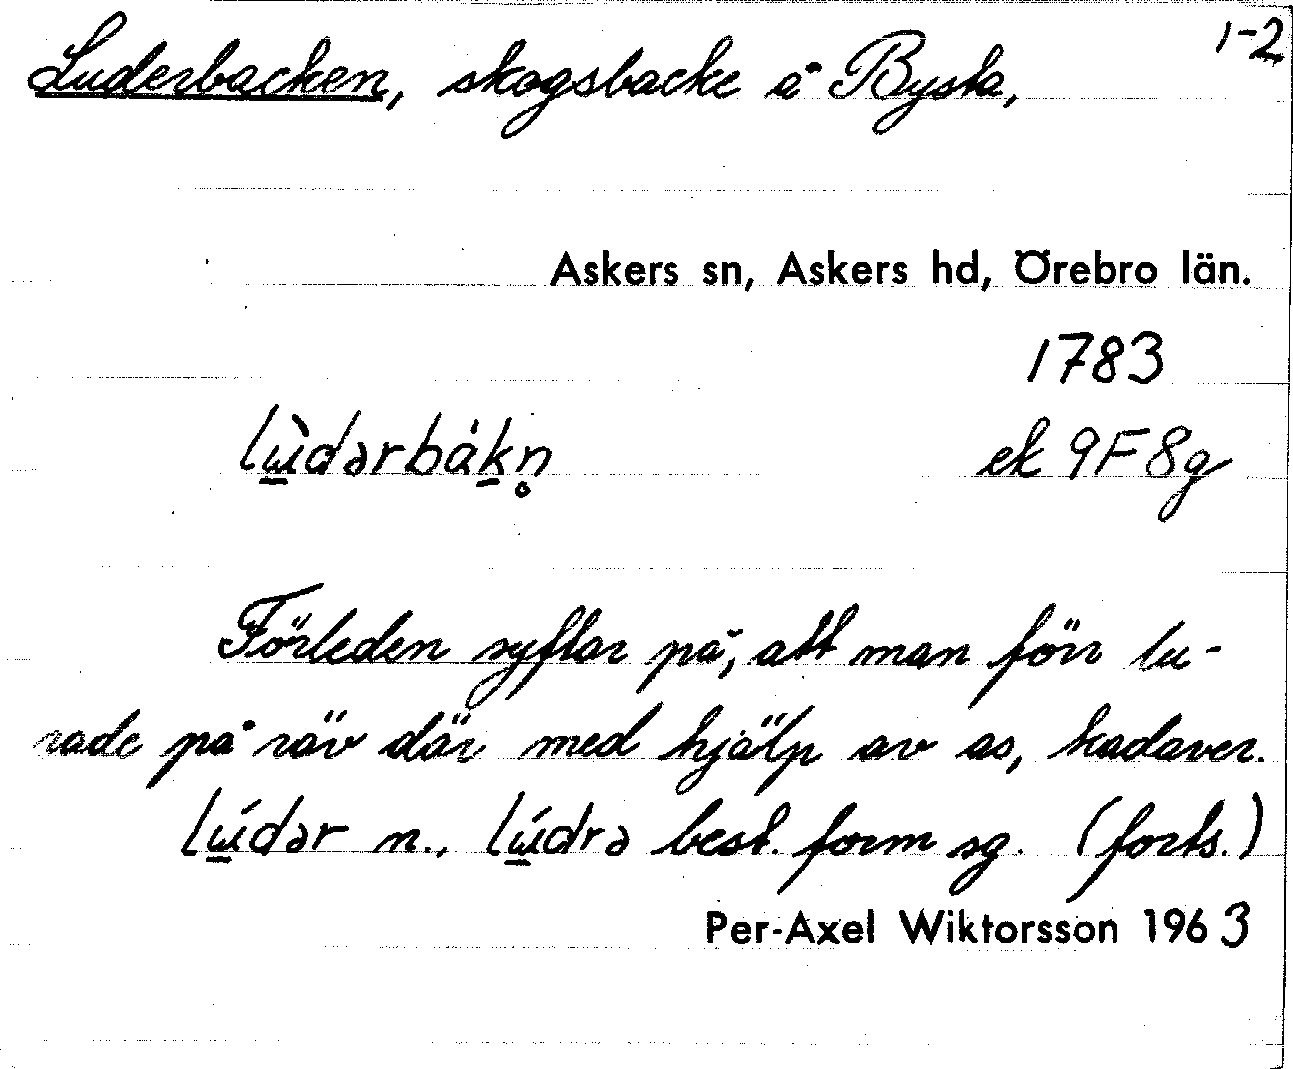 1-2
Luderbacken, skogsbacke å Bysta,
Askers sn, Askers hd, Örebro län.
1783
lù̲dərbák̲n̥ ek 9F8g
Förleden syftar på, att man förr lu-
rade på räv där med hjälp av as, kadaver.
lú̲dər n., lú̲drə best. form sg. (forts.)
Per-Axel Wiktorsson 1963